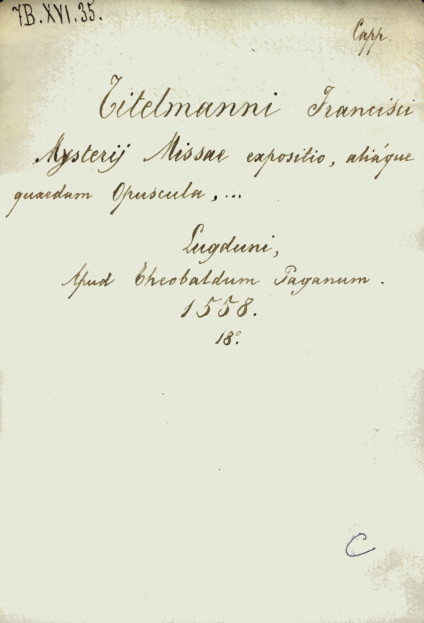 7B.XVI.35.
Capp.
Titelmanni Francisci
Mysterij Missae expositio, aliáque
quaedam Opuscula, ...
Lugduni,
Apud Theobaldum Paganum.
1558.
18°.
C